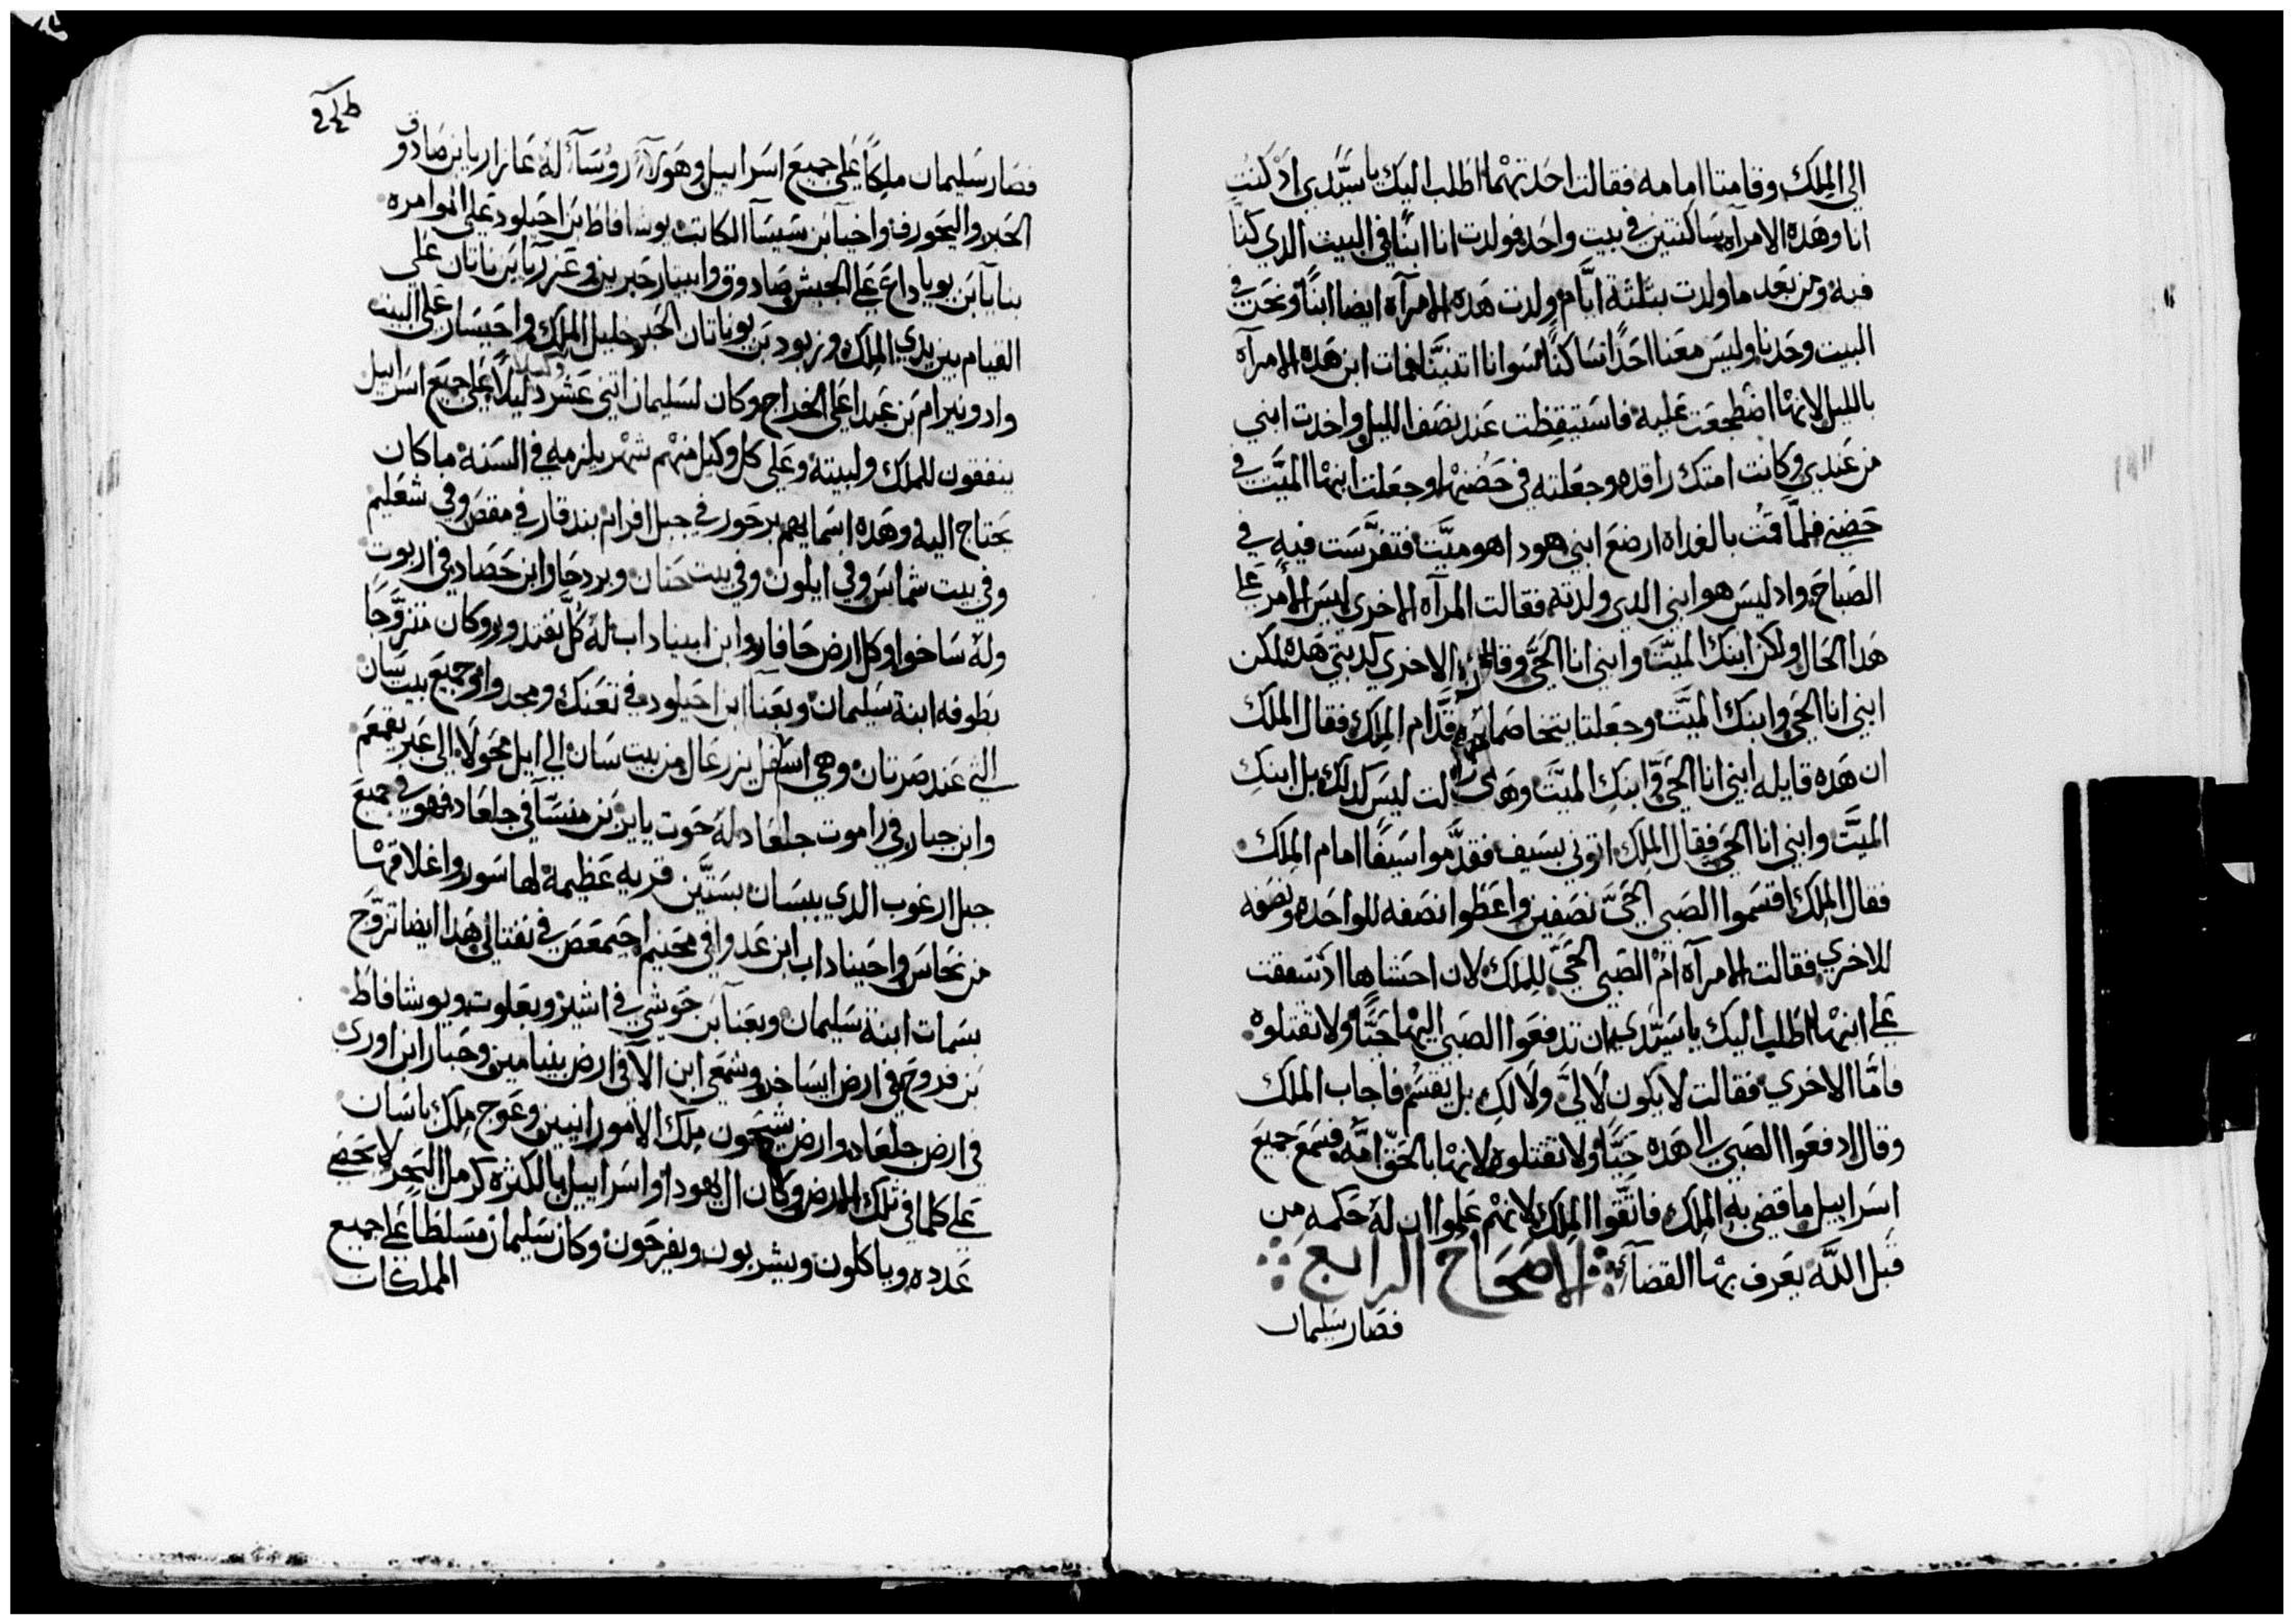 الي الملك وقامتا امامه فقالت احدتهما اطلب اليك يا سيّدي اذ كنت
انا وهده الامرآه ساكنتين في بيت واحد فولدت انا ابنًا في البيت الدي كنا
فيه ومن بعد ما ولدت بثلثة ايّام ولدت هده الامرآه ايضا ابنًا ونحن في
البيت وحدنا وليس معنا احدًا ساكنًا سوانا اتنيتنا فمات ابن هده الامرآه
بالليل لانها اضطجعت عليه فاستيقظت عند نصف الليل واخدت ابني
من عندي وكانت امتك راقده وجعلته في حضنها وجعلت ابنها الميّت في
حضني فلمّا قمت بالغداه ارضع ابني هودا هو ميّت فتفرّست فيه في
الصباح واد ليس هو ابني الدي ولدته فقالت المرآه الاخري ليس الامر علي
هدا الحال ولكن ابنك الميّت وابني انا الحيّ وقالت الاخري كدبتي هده لكن
ابني انا الحي وابنك الميّت وجعلتا يتخاصما قدّام الملك فقال الملك
ان هده قايله ابني انا الحي وابنك الميّت وهدي قالت ليس كدلك بل ابنك
الميّت وابني انا الحي فقال الملك اتوني بسيف فقدّموا سيفًا امام الملك
فقال الملك اقسموا الصبي الحيّ نصفين واعطوا نصفه للواحده ونصفه
للاخري فقالت الامرآه امّ الصبي الحيّ للملك لان احشاها اد شفقت
علي ابنها اطلب اليك يا سيّدي ان تدفعوا الصبي اليها حيًّا ولا تقتلوه
فامّا الاخري فقالت لا يكون لا ليّ ولا لكِ بل يقسّم فاجاب الملك
وقال ادفعوا الصبي الي هده حيًّا ولا تقتلوه لانها بالحق امّه فسمع جميع
اسراييل ما قضي به الملك فاتّقوا الملك لانهم علموا ان له حكمه من
قبل اللّه يعرف بها القضآء الاصحاح الرابع
فصار سليمان
فصار سليمان ملكًا علي جميع اسراييل وهولآء روُسآء له عازاريا بن صادوق
الحبر واليحورف واخيا بن شيسآ الكاتب يوشافاط بن احيلود علي الاوامره
بنايا بن يوياداع علي الجيش صادوق وابيتار حبرين وعزريا بن ناتان علي
القيام بين يدي الملك وزبود بن يوناتان الحبر خليل الملك واحيسار علي البيت
وادونيرام بن عبدا علي الخراج وكان لسليمان اتني عشر دليلًا علي جميع اسراييل
ينفقون للملك ولبيته وعلي كل وكيل منهم شهر يلزمه في السنة ما كان
يحتاج اليه وهده اسمايهم بن حور في جبل افرام بن دقار في مقص وفي شعليم
وفي بيت شماس وفي ايلون وفي بيت حنان وبردحا وابن حصاد في اربوت
وله ساخوا وكل ارض حافار وابن ابيناداب له كُل نفتدور وكان متزوّجًا
بطوفه ابنة سليمان وبعنا ابن احيلود في تعنك ومجدوا وجميع بيت سان
التي عند صرتان وهي اسفل يزرعال من بيت سان الي ابل محولا الي عبر يقمعم
وابن جبار في راموت جلعاد له حوت يايربن منسّآ في جلعاد فهو في جميع
جبل ارغوب الدي ببيسان بستّين قريه عظيمة لها سور واغلاقها
من نحاس واحيناداب ابن عدوا في محنيم احيمعص في نفتالي هدا ايضا تزوّج
بسمات ابنة سليمان وبعنآ بن حوشي في اشير وبعلوت ويوشافاط
بن فروح في ارض ايساخر وشمعي ابن الا في ارض بنيامين وجبار ابن اوري
في ارض جلعاد وارض شيحون ملك الاموراييين وعوج ملك باسان
علي كلما في تلك الارض وكان ال يهودا واسراييل بالكثره كرمل البحر لا يحصي
عدده وياكلون ويشربون ويفرحون وكان سليمان مسلطًا علي جميع
المملكات